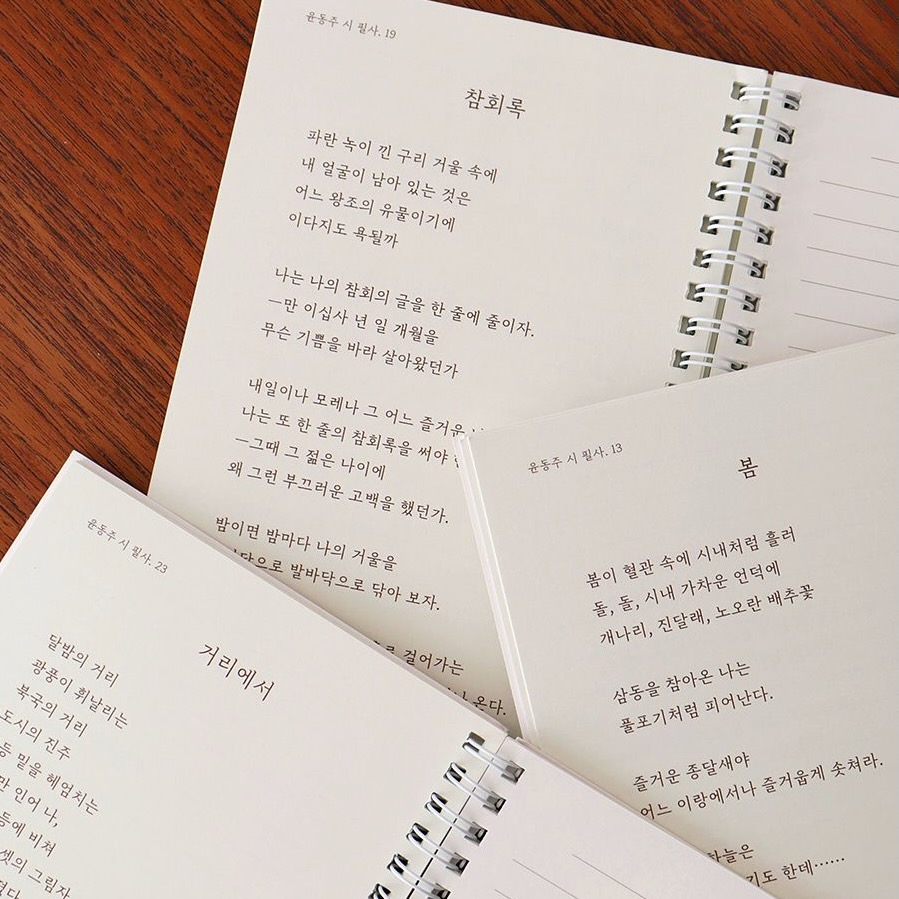 윤동주 시 필사. 19
참회록
파란 녹이 낀 구리 거울 속에
내 얼굴이 남아 있는 것은
어느 왕조의 유물이기에
이다지도 욕될까
나는 나의 참회의 글을 한 줄에 줄이자.
─만 이십사 년 일 개월을
무슨 기쁨을 바라 살아왔던가
내일이나 모레나 그 어느 즐거운
나는 또 한 줄의 참회록을 써야
─그때 그 젊은 나이에
왜 그런 부끄러운 고백을 했던가.
밤이면 밤마다 나의 거울을
발바닥으로 닦아 보자.
걸어가는
온다.
윤동주 시 필사. 13
봄
봄이 혈관 속에 시내처럼 흘러
돌, 돌, 시내 가차운 언덕에
개나리, 진달래, 노오란 배추꽃
삼동을 참아온 나는
풀포기처럼 피어난다.
즐거운 종달새야
어느 이랑에서나 즐거웁게 솟쳐라.
하늘은
한데……
윤동주 시 필사. 23
거리에서
달밤의 거리
광풍이 휘날리는
북국의 거리
도시의 진주
등 밑을 헤엄치는
만 인어 나,
등에 비쳐
셋의 그림자